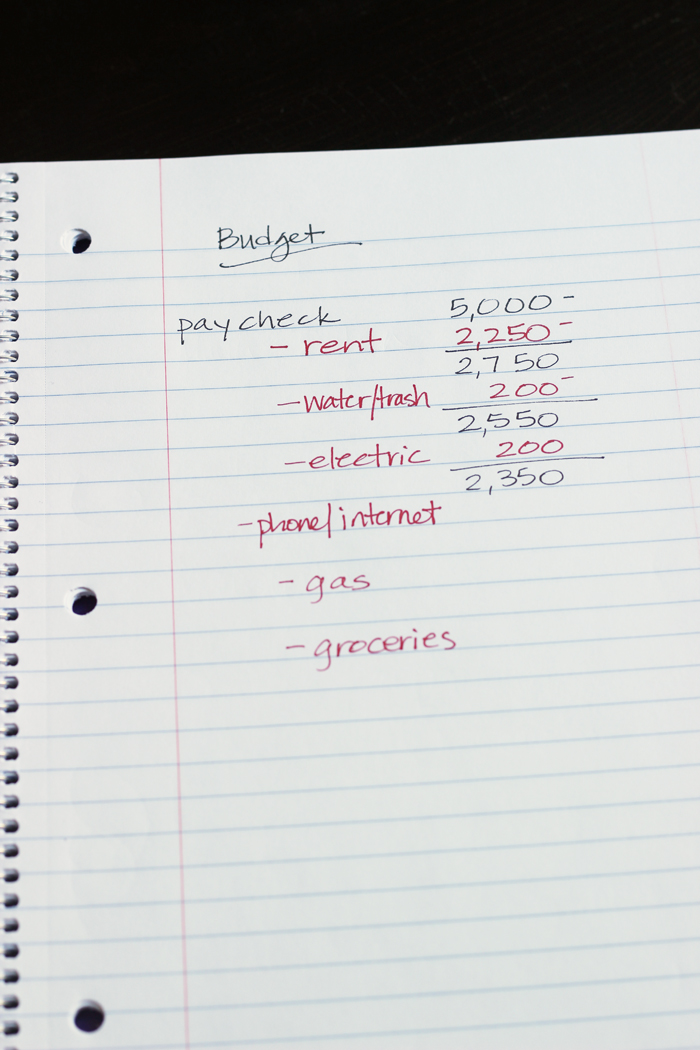 Budget
paycheck 5,000 -
- rent 2,250 -
2,750
- water/trash 200 -
2,550
- electric 200
2,350
- phone/internet
- gas
- groceries